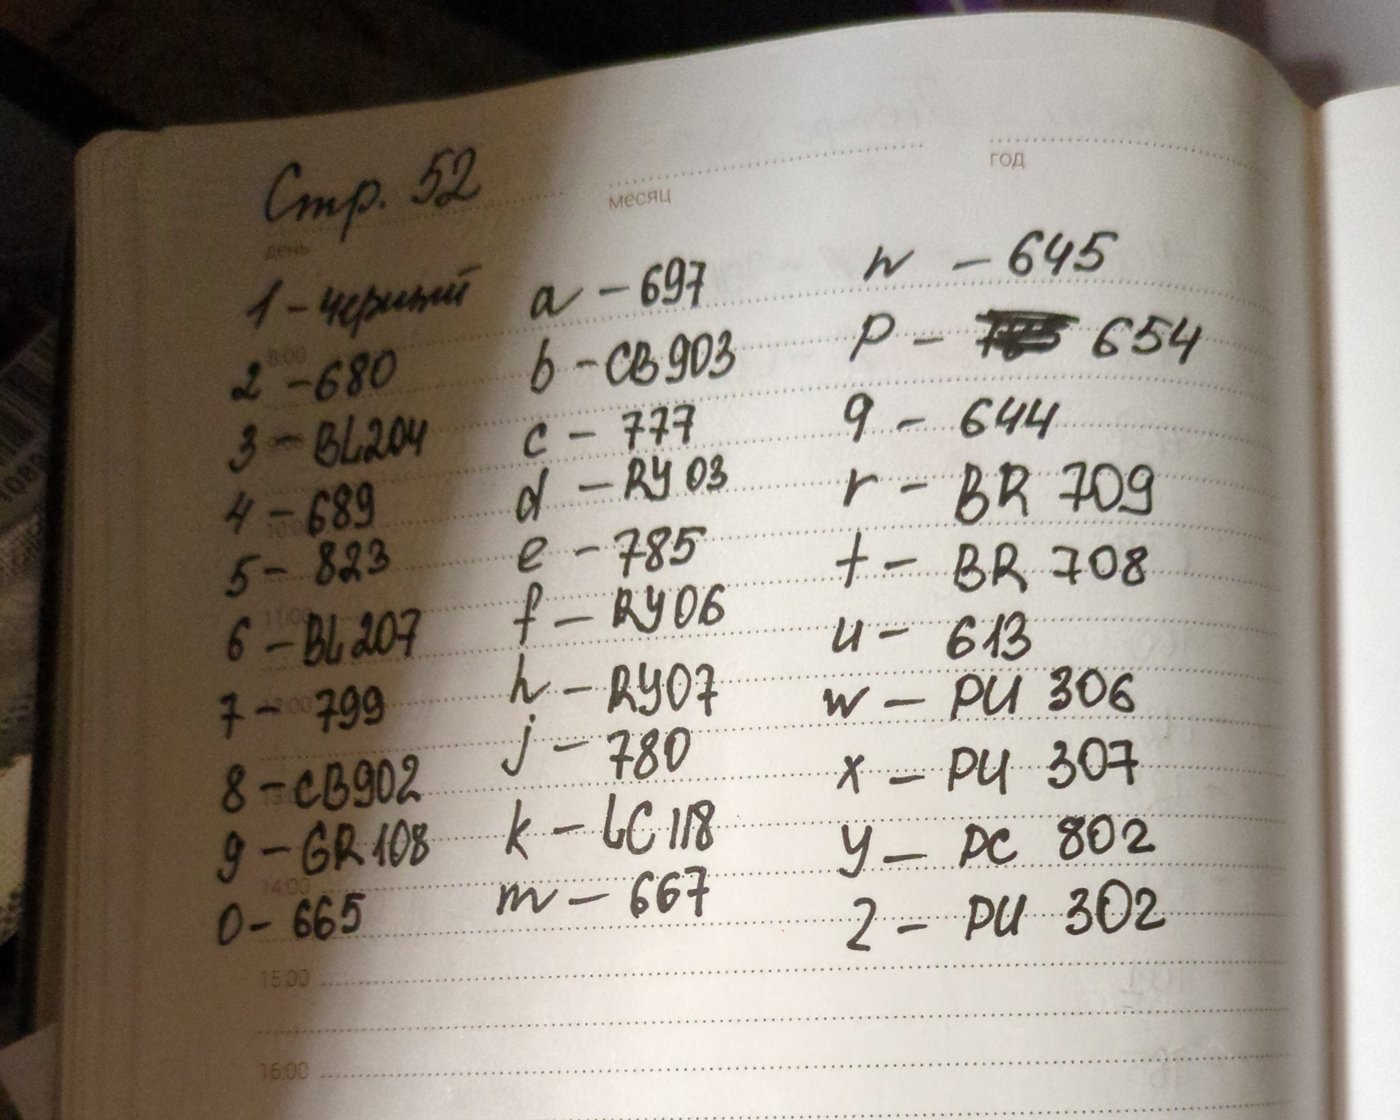 Стр. 52
день
месяц
год
1 - черный
2 - 680
3 - BL204
4 - 689
5 - 823
6 - BL207
7 - 799
8 - CB902
9 - GR108
0 - 665
a - 697
b - CB903
c - 777
d - RY03
e - 785
f - RY06
h - RY07
j - 780
k - LC118
m - 667
n - 645
p - 654
q - 644
r - BR 709
t - BR 708
u - 613
w - PU 306
x - PU 307
y - PC 802
z - PU 302
8:00
10:00
11:00
12:00
13:00
14:00
15:00
16:00